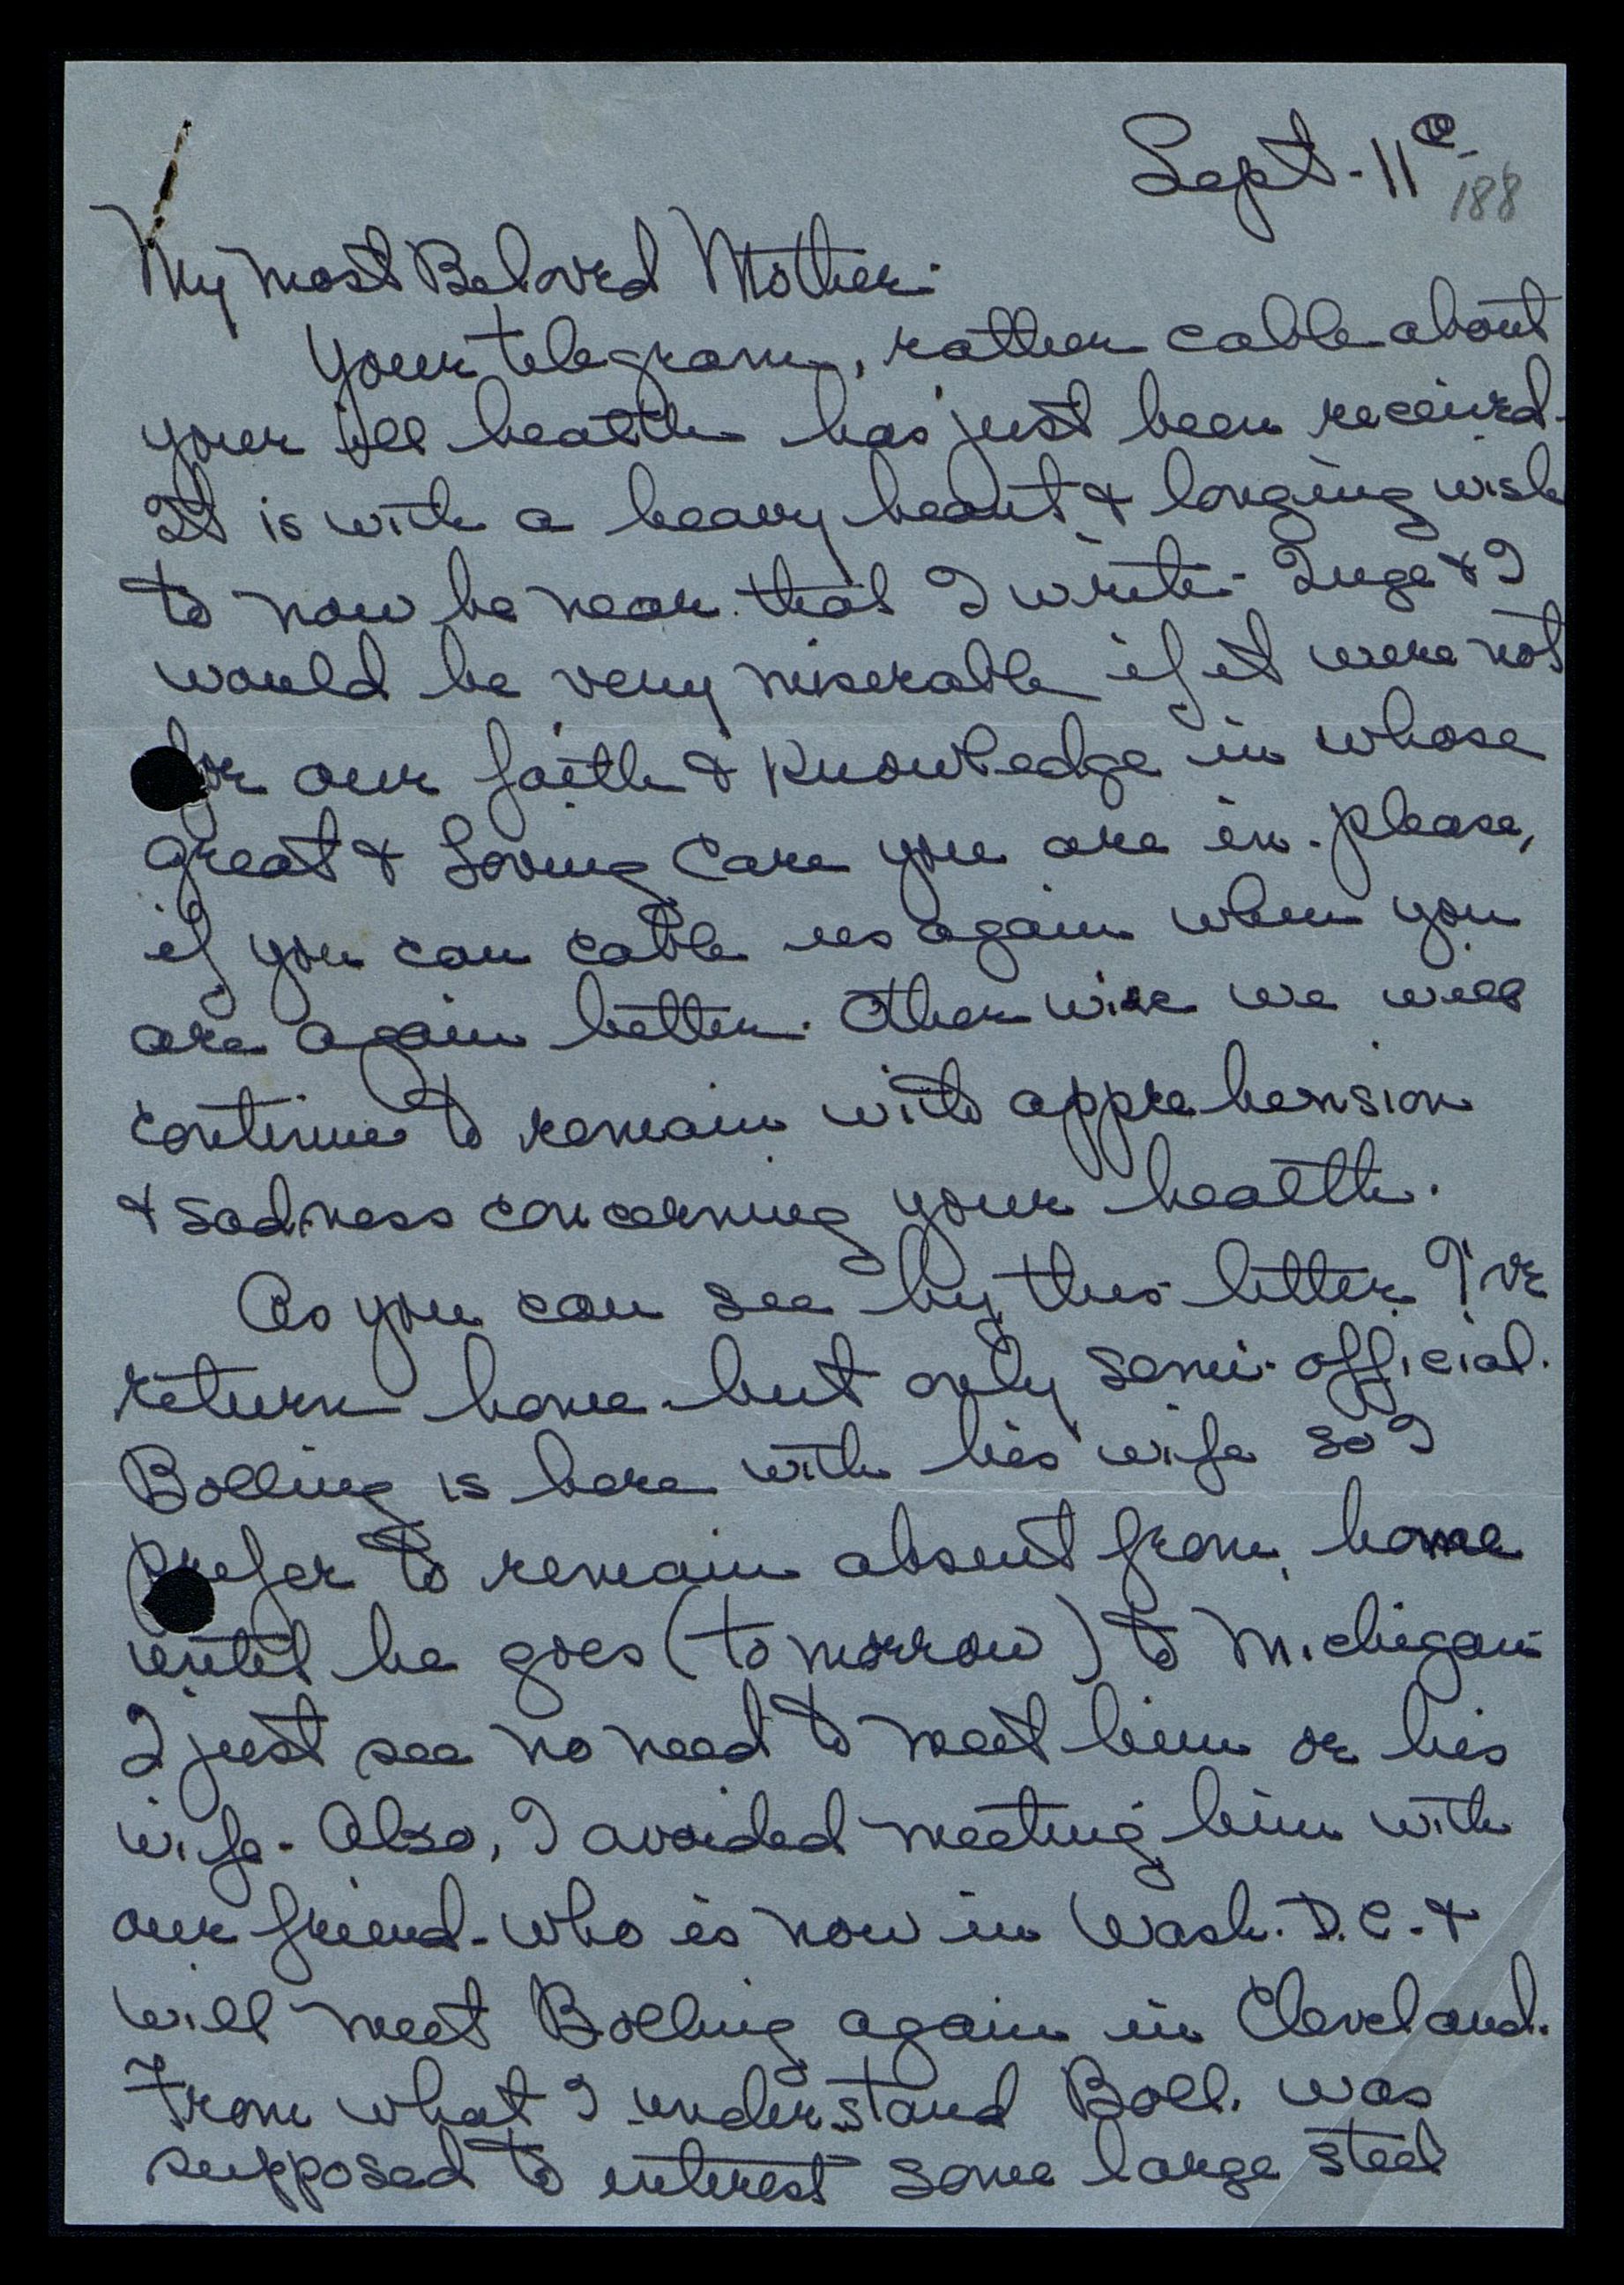 Sept - 11th
188
My most Beloved Mother -
Your telegram, rather cable about
your ill health has just been received.
It is with a heavy heart & longing wish
to now be near that I write. Inge & I
would be very miserable if it were not
for our faith & knowledge in whose
great & Loving Care you are in. please,
if you can cable us again when you
are again better. Otherwise we will
continue to remain with apprehension
& sadness concerning your health.
As you can see by this letter I've
return home but only semi-official.
Bolling is here with his wife so I
prefer to remain absent from home
until he goes (tomorrow) to Michigan
I just see no need to meet him or his
wife. Also, I avoided meeting him with
our friend - who is now in Wash. D.C. &
will meet Bolling again in Cleveland.
From what I understand Boll. was
supposed to interest some large steel